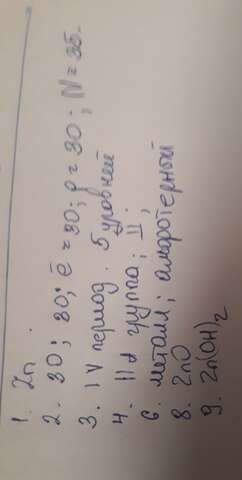 1. Zn.
2. 30; 30; ē = 30; p = 30; N = 35.
3. IV период. 5 уровней
4. II d группа; II;
6. металл; амфотерной
8. ZnO
9. Zn(OH)₂